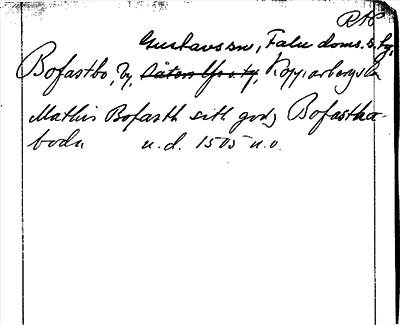 RAP
Gustavs sn, Falu doms. s. fg,
Bofastbo, by, Säters lfs. fg, Kopparbergs län
Mathis Bofasth sith godz Bofastha-
boda u.d. 1505 u.o.